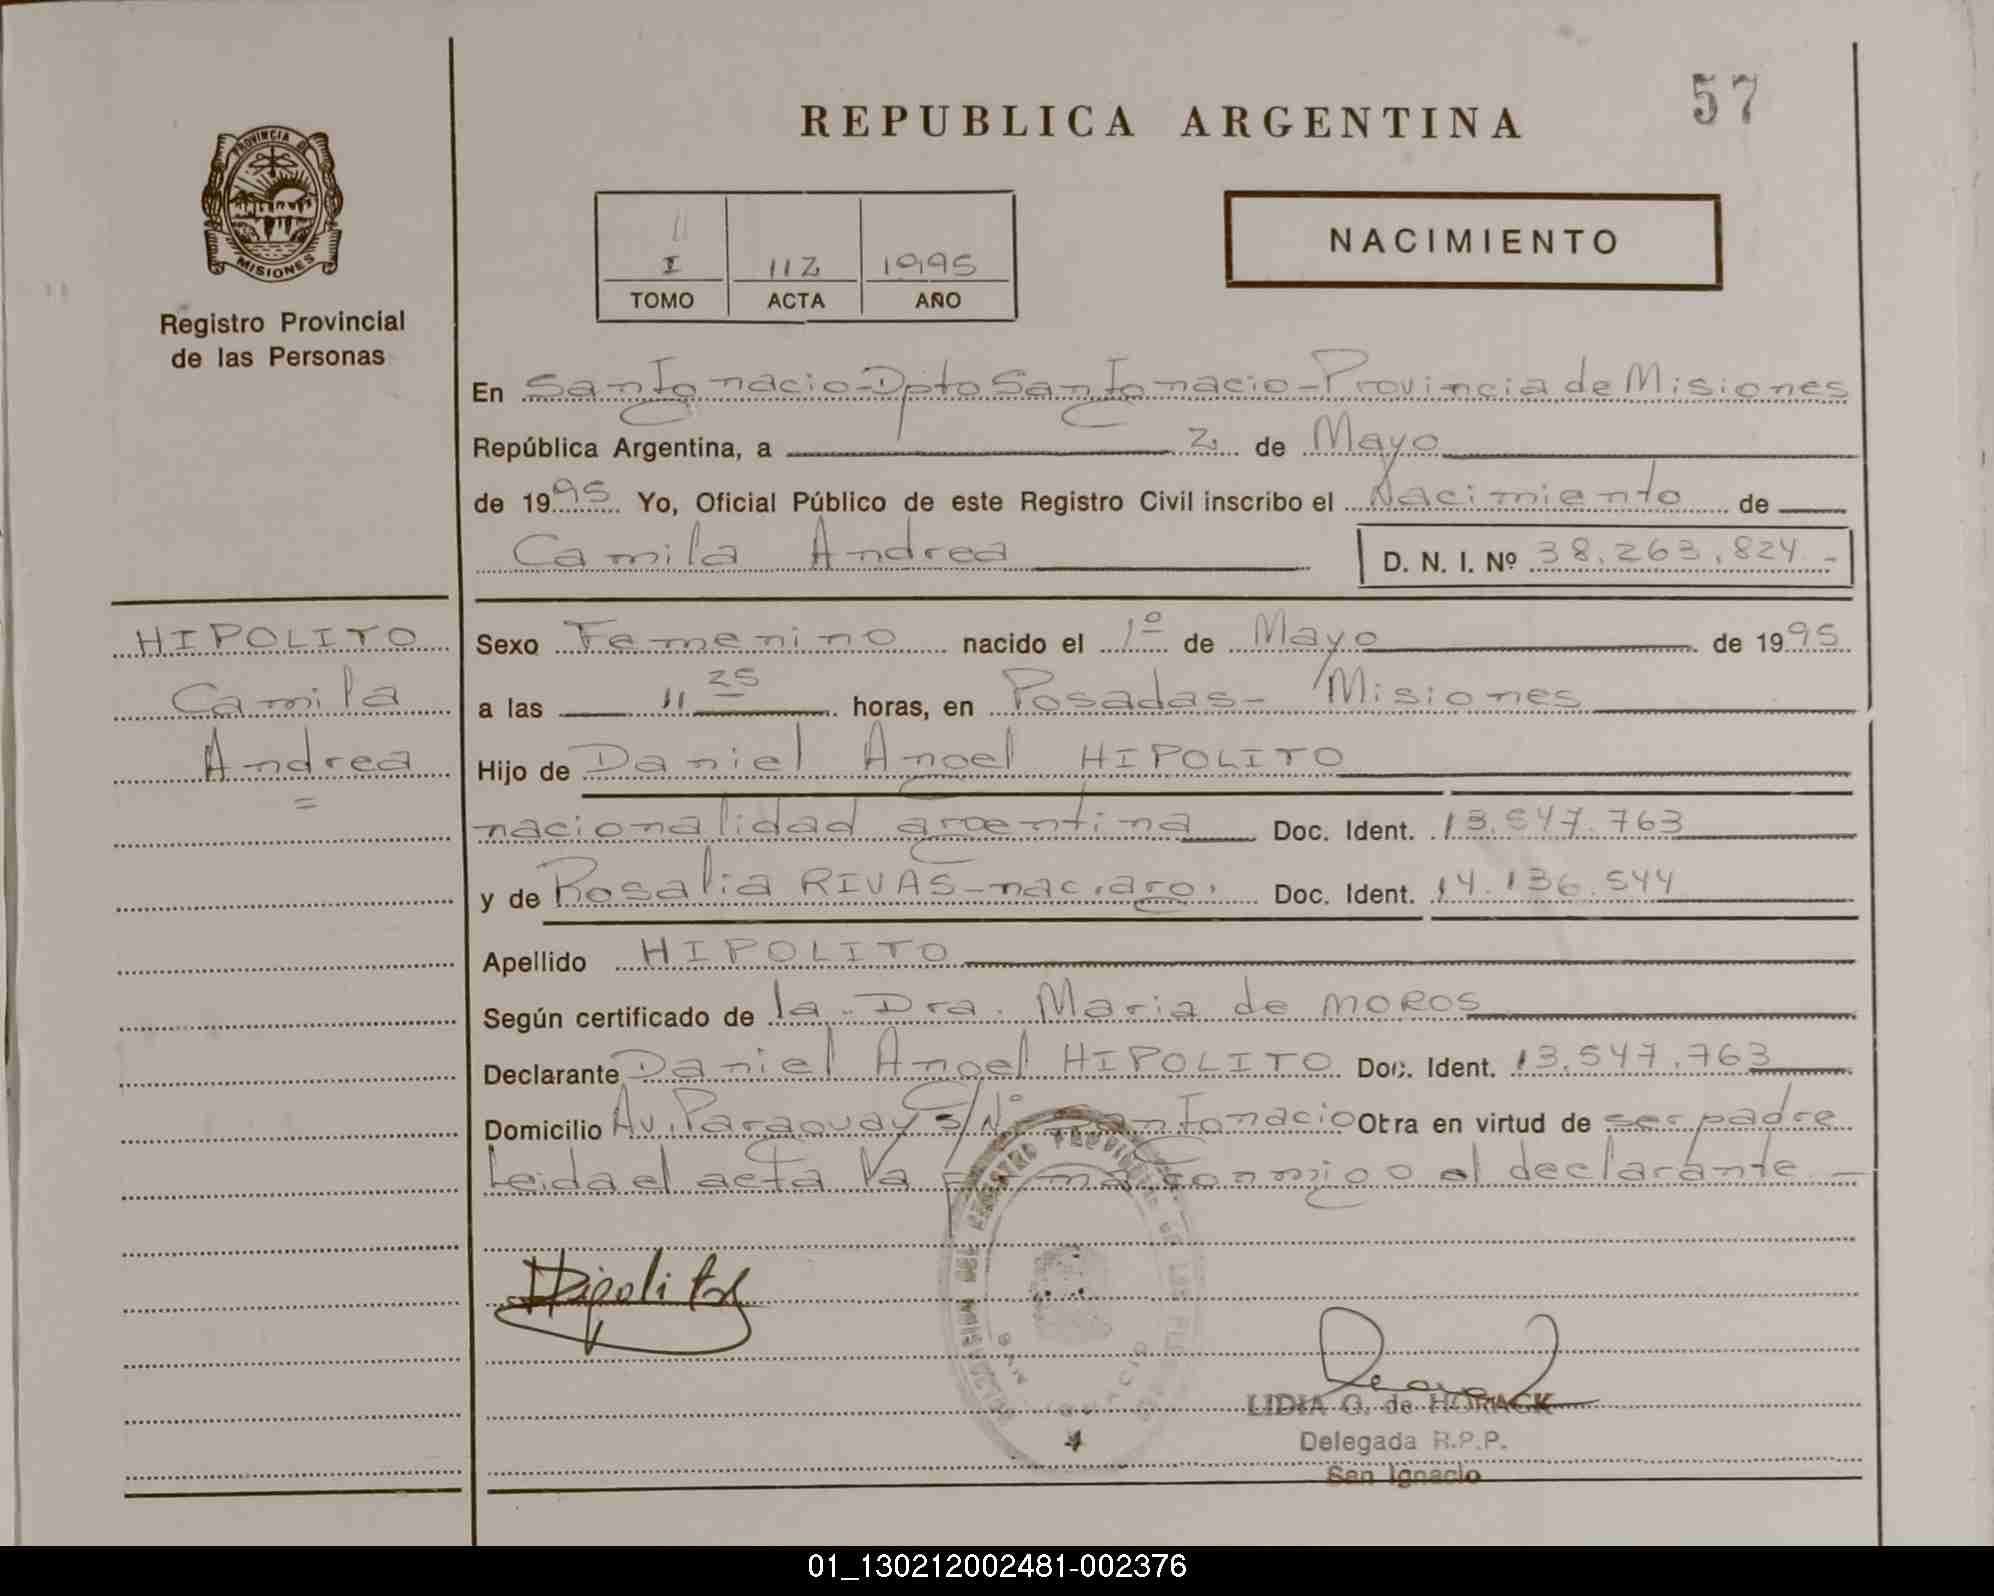 57
REPUBLICA ARGENTINA
PROVINCIA DE
MISIONES
NACIMIENTO
II
I 112 1995
TOMO ACTA AÑO
Registro Provincial
de las Personas
En San Ignacio-Dpto San Ignacio-Provincia de Misiones
República Argentina, a 2 de Mayo
de 1995 Yo, Oficial Público de este Registro Civil inscribo el Nacimiento de
Camila Andrea D. N. I. Nº 38.263.824.-
HIPOLITO
Camila
Andrea
=
Sexo Femenino nacido el 1º de Mayo de 1995
a las 11 25 horas, en Posadas- Misiones
Hijo de Daniel Angel HIPOLITO
nacionalidad argentina Doc. Ident. 13.547.763
y de Rosalia RIVAS-nac.arg. Doc. Ident. 14.136.544
Apellido HIPOLITO
Según certificado de la Dra. Maria de MOROS
Declarante Daniel Angel HIPOLITO Doc. Ident. 13.547.763
Domicilio Av. Paraguay S/Nº San Ignacio Obra en virtud de ser padre
Leida el acta la firma conmigo el declarante -
Hipolito
LIDIA G. de HORACK
Delegada R.P.P.
San Ignacio
01_130212002481-002376